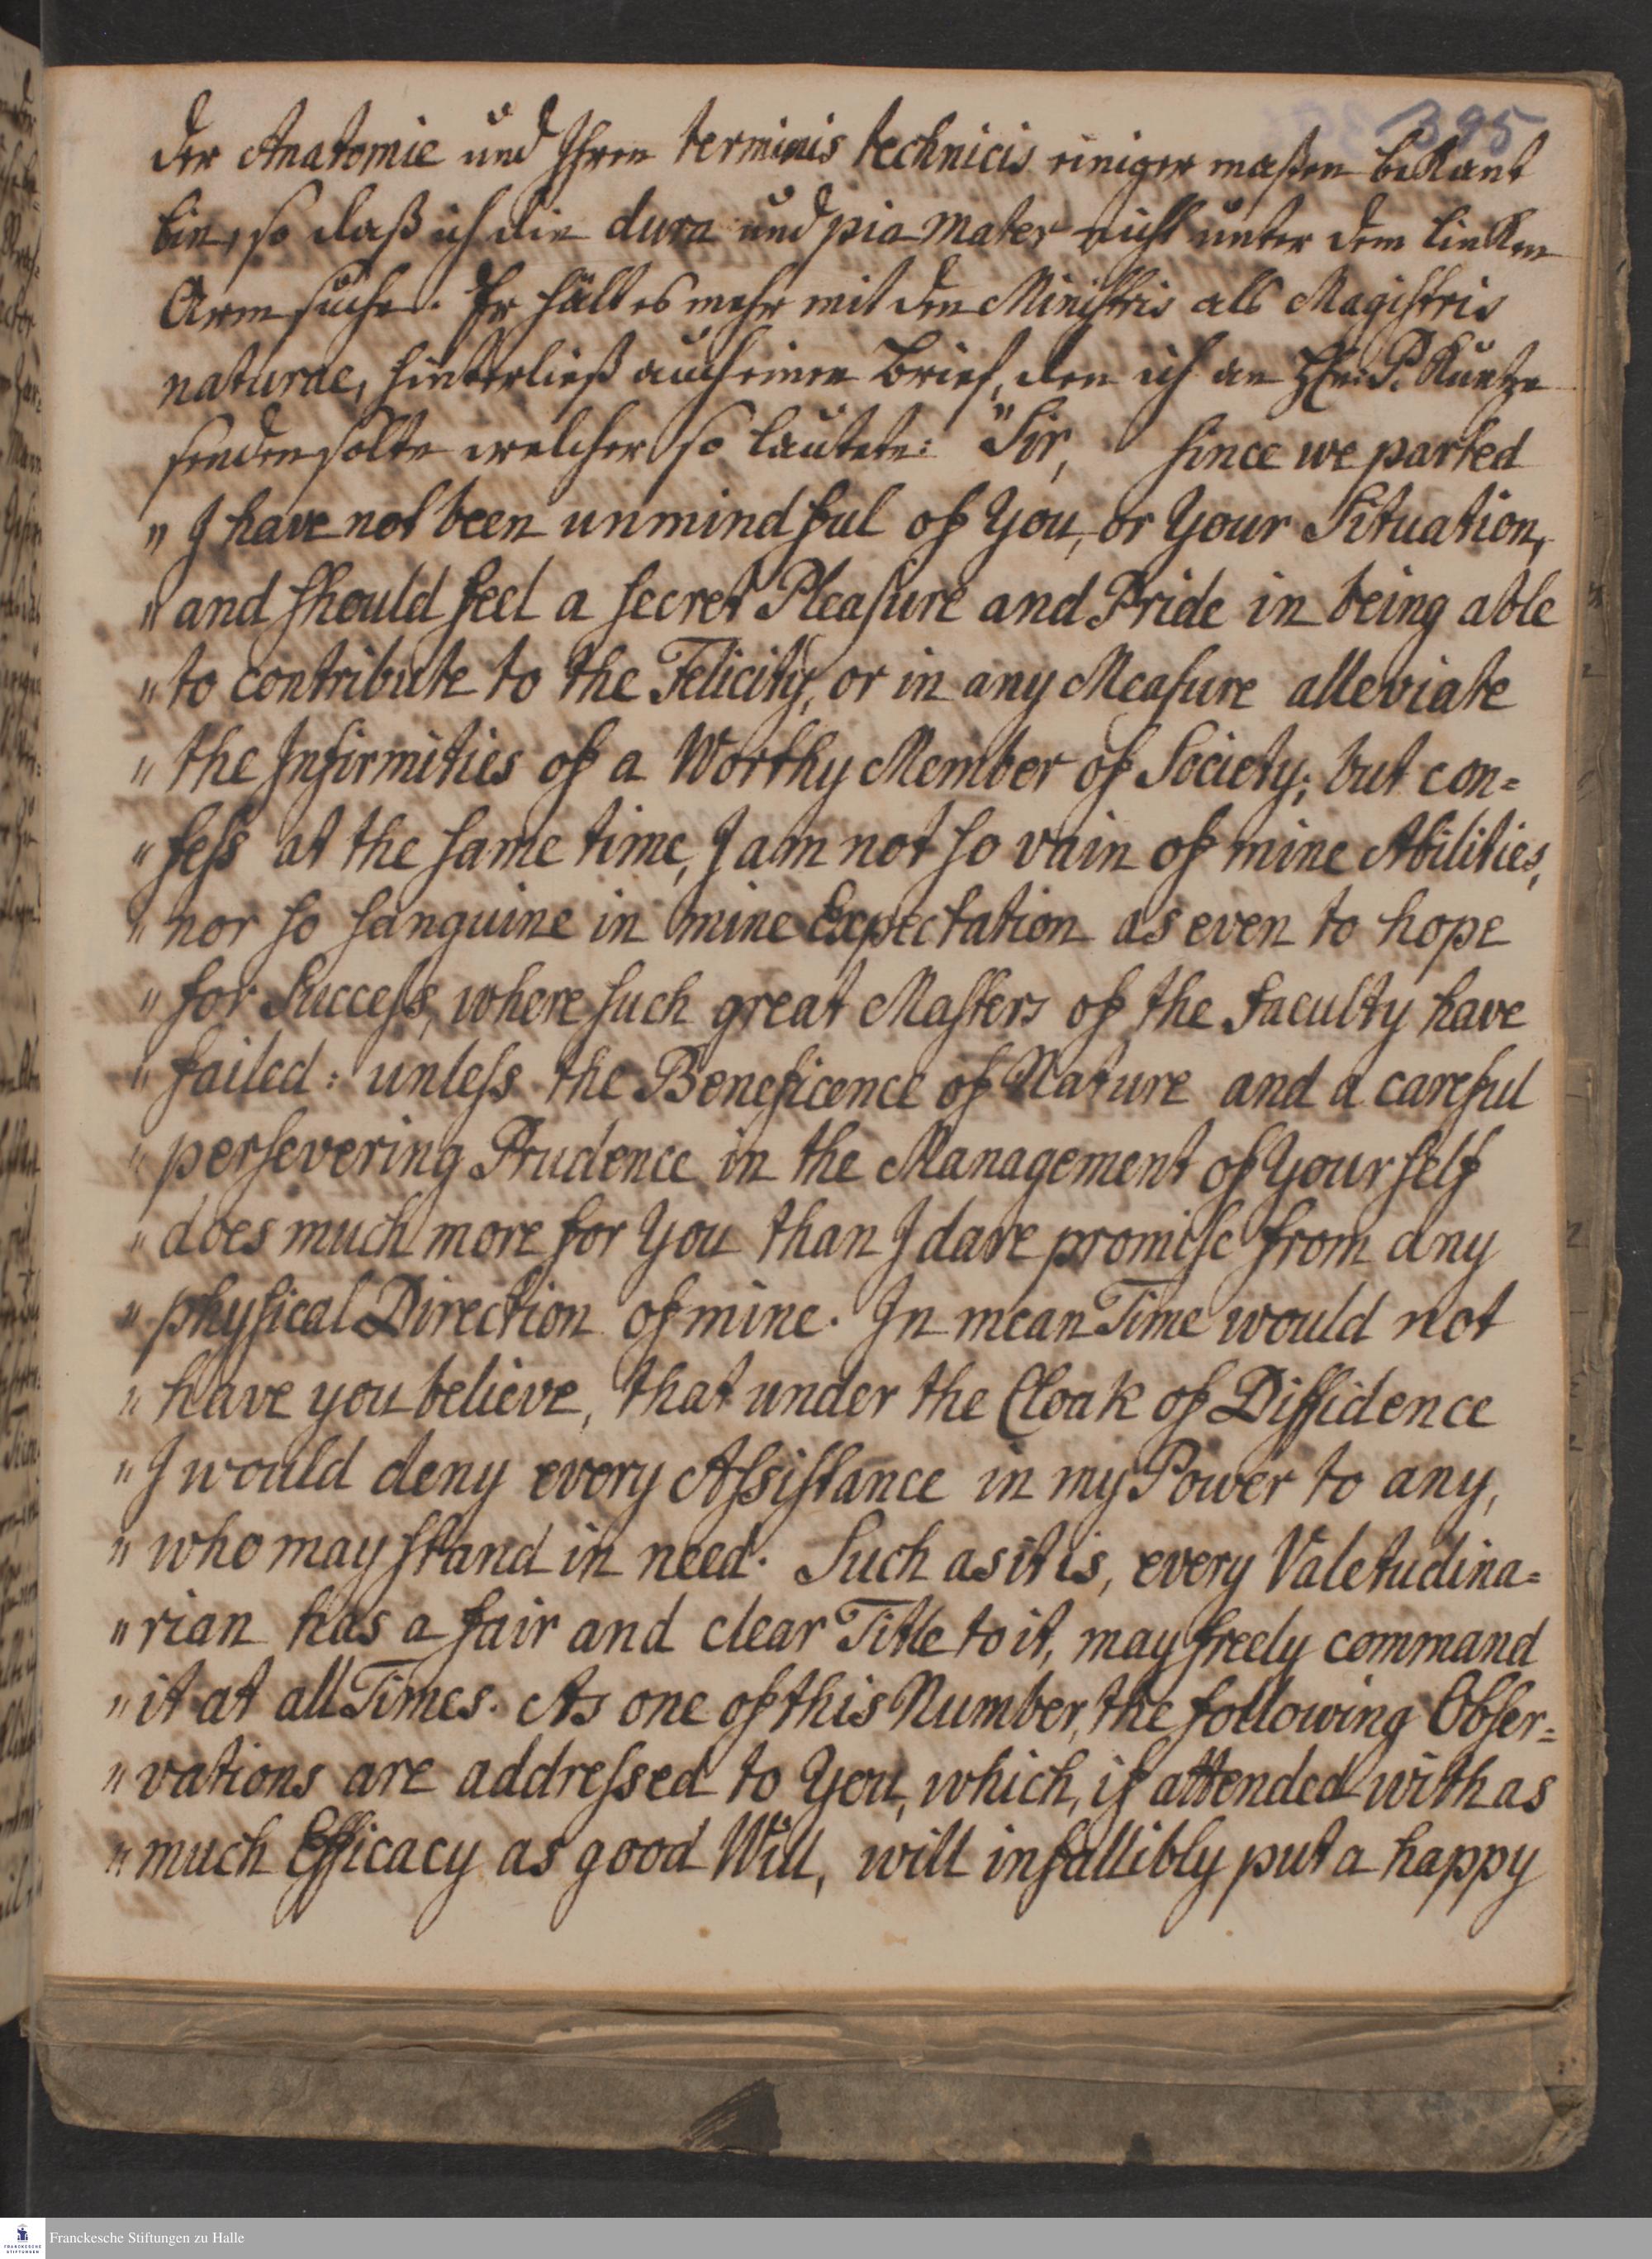 395
der Anatomie und Ihren terminis technicis einiger maßen bekant
bin, so daß ich die dura und pia mater nicht unter dem lincken
Arm suche. Er hält es mehr mit den Ministris als Magistris
naturae, hinterließ auch einen Brief, den ich an Hn. P. Kuntze
senden solte welcher so lautete: "Sir, since we parted
" I have not been unmindful of You, or Your Situation,
" and should feel a secret Pleasure and Pride in being able
" to contribute to the Felicity, or in any Measure alleviate
" the Infirmities of a Worthy Member of Society; but con=
" fess at the same time, I am not so vain of mine Abilities,
" nor so sanguine in mine Expectation as even to hope
" for Success, where such great Masters of the Faculty have
" failed: unless the Beneficence of Nature and a careful
" persevering Prudence in the Management of Your self
" does much more for You than I dare promise from any
" physical Direction of mine. In mean Time would not
" have you believe, that under the Cloak of Diffidence
" I would deny every Assistance in my Power to any,
" who may stand in need. Such as it is, every Valetudina=
" rian has a fair and clear Title to it, may freely command
" it at all Times. As one of this Number, the following Obser=
" vations are addressed to You, which, if attended with as
" much Efficacy as good Will, will infallibly put a happy
Franckesche Stiftungen zu Halle